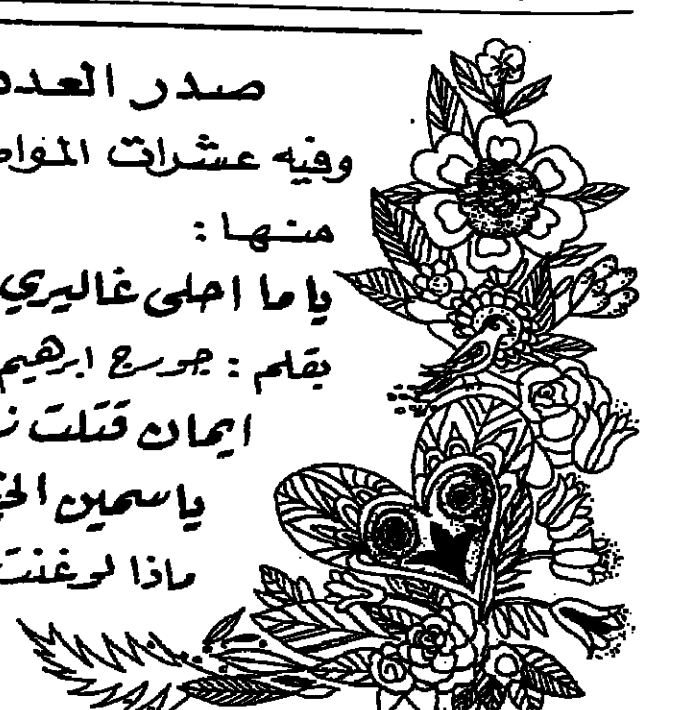 صدر العدد
وفيه عشرات
منها :
ياما احلى غاليري
بقلم : جورج ابرهيم
ايمان قتلت
ياسمين
ماذا لو غنت